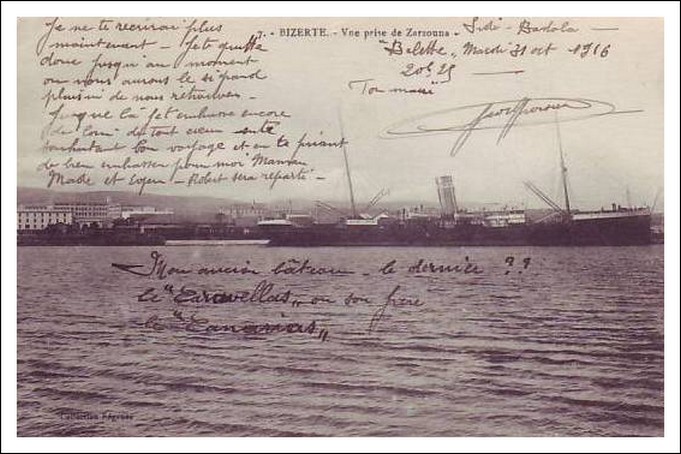 7. - BIZERTE. - Vue prise de Zarzouna -
Je ne te récrirai plus
maintenant - Je te quitte
donc jusqu'au moment
où nous aurons le si grand
plaisir de nous retrouver -
Jusque là je t'embrasse encore
de loin de tout cœur en te
souhaitant bon voyage et en te priant
de bien embrasser pour moi Maman
Made et - Robert sera reparti -
Sidi -
Mardi 31 oct 1916
20h 25
Ton mari
Mon ancien bâteau - le dernier ??
le " ou son frère
le "Canarias"
Collection